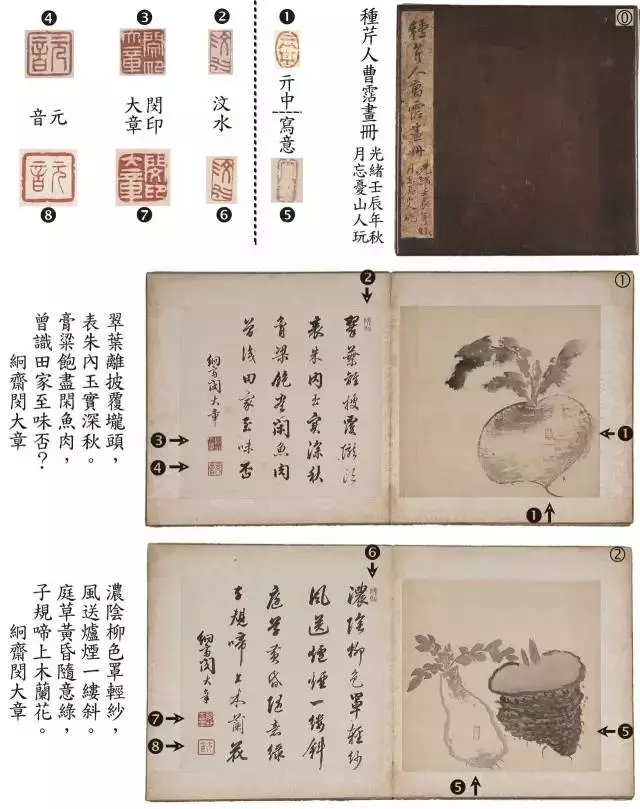 種芹人曹霑畫冊
光緒壬辰年秋
月忘憂山人玩
❶
亓中
寫意
❺
❷
汶水
❻
❸
閔印
大章
❼
❹
元音
❽
⓪
種芹人曹霑畫冊
光緒壬辰年秋
月忘憂山人玩
翠葉離披覆壠頭，
表朱內玉實深秋。
膏粱飽盡閑魚肉，
曾識田家至味否？
絅齋閔大章
①
❶
❶
❷
翠葉離披覆壠頭
表朱內玉實深秋
膏粱飽盡閑魚肉
曾識田家至味否
絅齋閔大章
❸
❹
濃陰柳色罩輕紗，
風送爐煙一縷斜。
庭草黃昏隨意綠，
子規啼上木蘭花。
絅齋閔大章
②
❺
❺
❻
濃陰柳色罩輕紗
風送爐煙一縷斜
庭草黃昏隨意綠
子規啼上木蘭花
絅齋閔大章
❼
❽